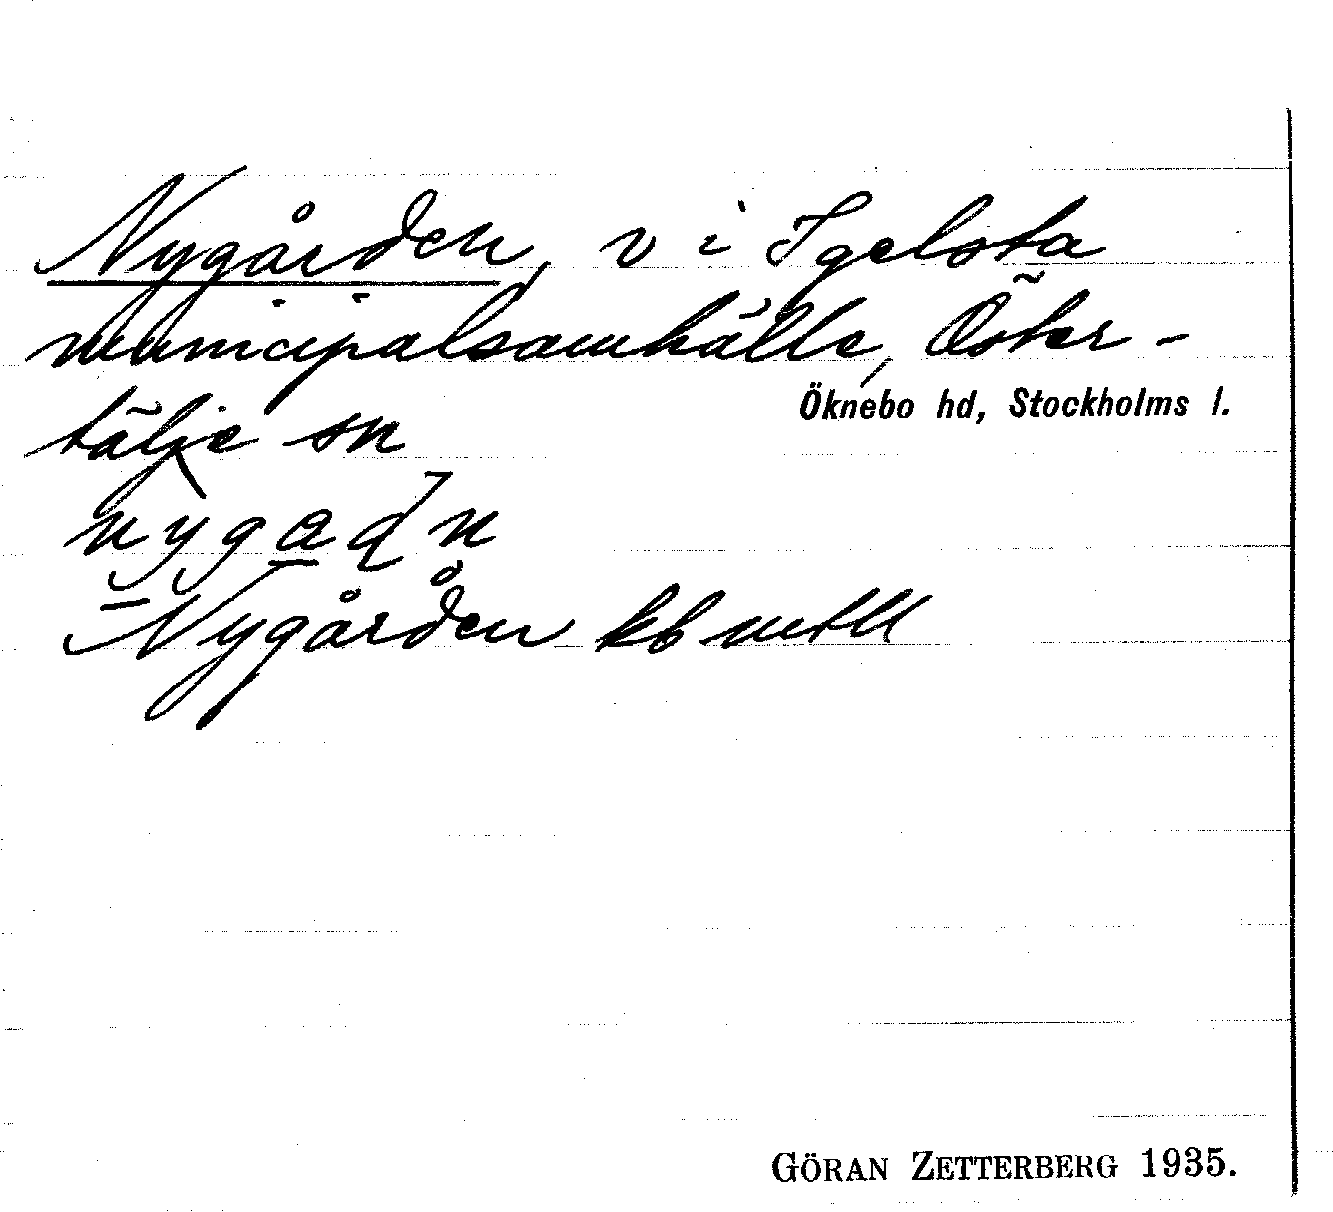 Nygården, v i Igelsta
municipalsamhälle, Öster-
Öknebo hd, Stockholms l.
tälje sn
nygadn
Nygården kb mtll
GÖRAN ZETTERBERG 1935.